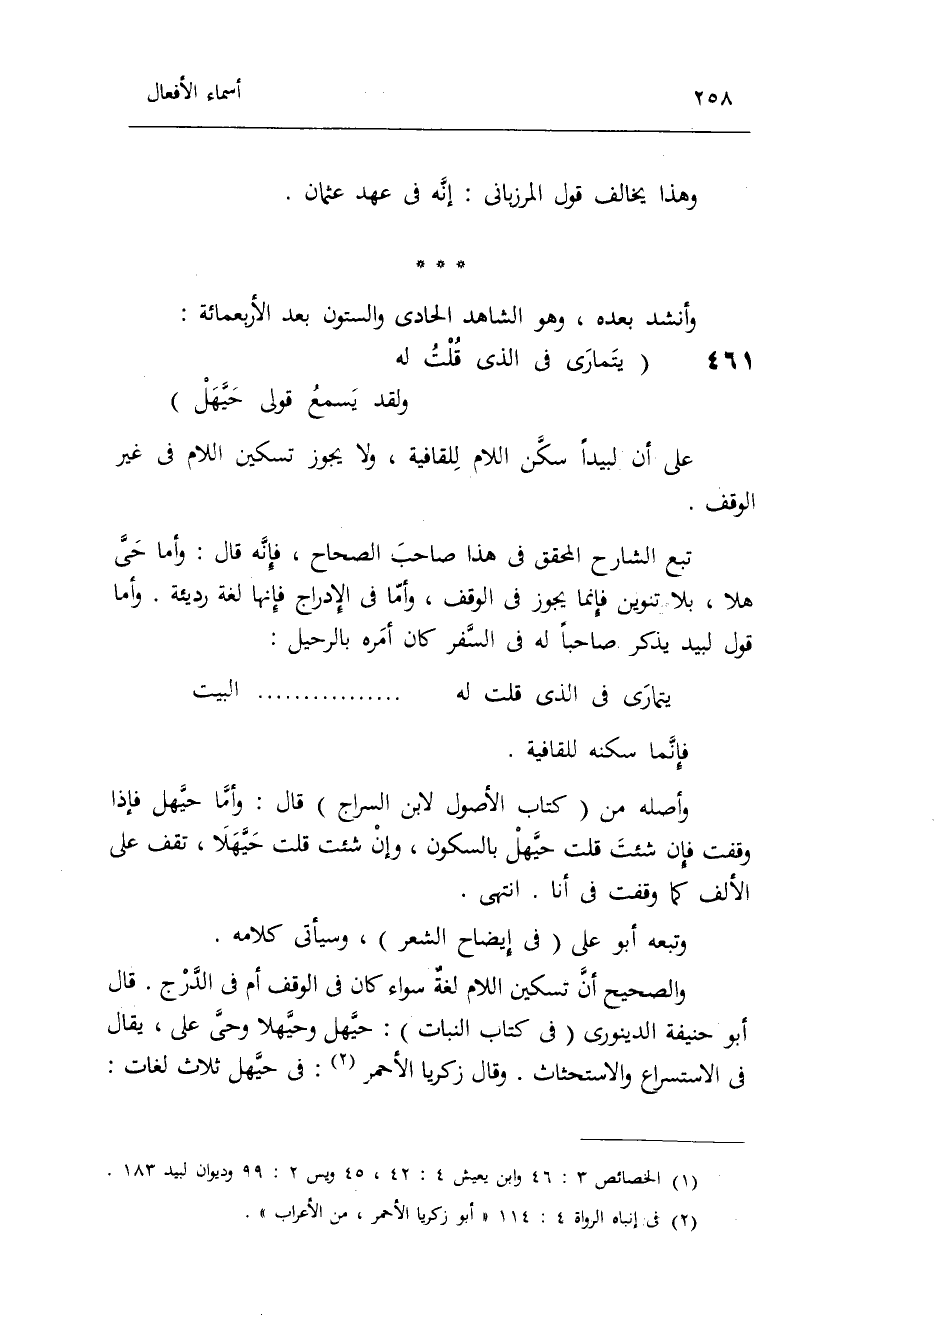 ٢٥٨ أسماء الأفعال
وهذا يخالف قول المرزبانى : إنَّه فى عهد عثمان .
* * *
وأنشد بعده ، وهو الشاهد الحادى والستون بعد الأربعمائة :
٤٦١ ( يتَمارَى فى الذى قُلْتُ له
ولقد يَسمعُ قولى حَيَّهَلْ )
على أن لبيداً سكَّن اللام لِلقافية ، ولا يجوز تسكين اللام فى غير
الوقف .
تبع الشارح المحقق فى هذا صاحبَ الصحاح ، فإِنَّه قال : وأما حَىَّ
هلا ، بلا تنوين فإنما يجوز فى الوقف ، وأمّا فى الإدراج فإنها لغة رديئة . وأما
قول لبيد يذكر صاحباً له فى السَّفر كان أمَره بالرحيل :
يتمارَى فى الذى قلت له ................ البيت
فإِنَّما سكنه للقافية .
وأصله من ( كتاب الأصول لابن السراج ) قال : وأمَّا حيَّهل فإذا
وقفت فإِن شئتَ قلت حيَّهلْ بالسكون ، وإنْ شئت قلت حَيَّهَلَا ، تقف على
الألف كما وقفت فى أنا . انتهى .
وتبعه أبو على ( فى إيضاح الشعر ) ، وسيأتى كلامه .
والصحيح أنَّ تسكين اللام لغةٌ سواء كان فى الوقف أم فى الدَّرْج . قال
أبو حنيفة الدينورى ( فى كتاب النبات ) : حيَّهل وحيَّهلا وحىَّ على ، يقال
فى الاستسراع والاستحثاث . وقال زكريا الأحمر (٢) : فى حيَّهل ثلاث لغات :
(١) الخصائص ٣ : ٤٦ وابن يعيش ٤ : ٤٢ ، ٤٥ ويس ٢ : ٩٩ وديوان لبيد ١٨٣ .
(٢) فى إنباه الرواة ٤ : ١١٤ « أبو زكريا الأحمر ، من الأعراب » .